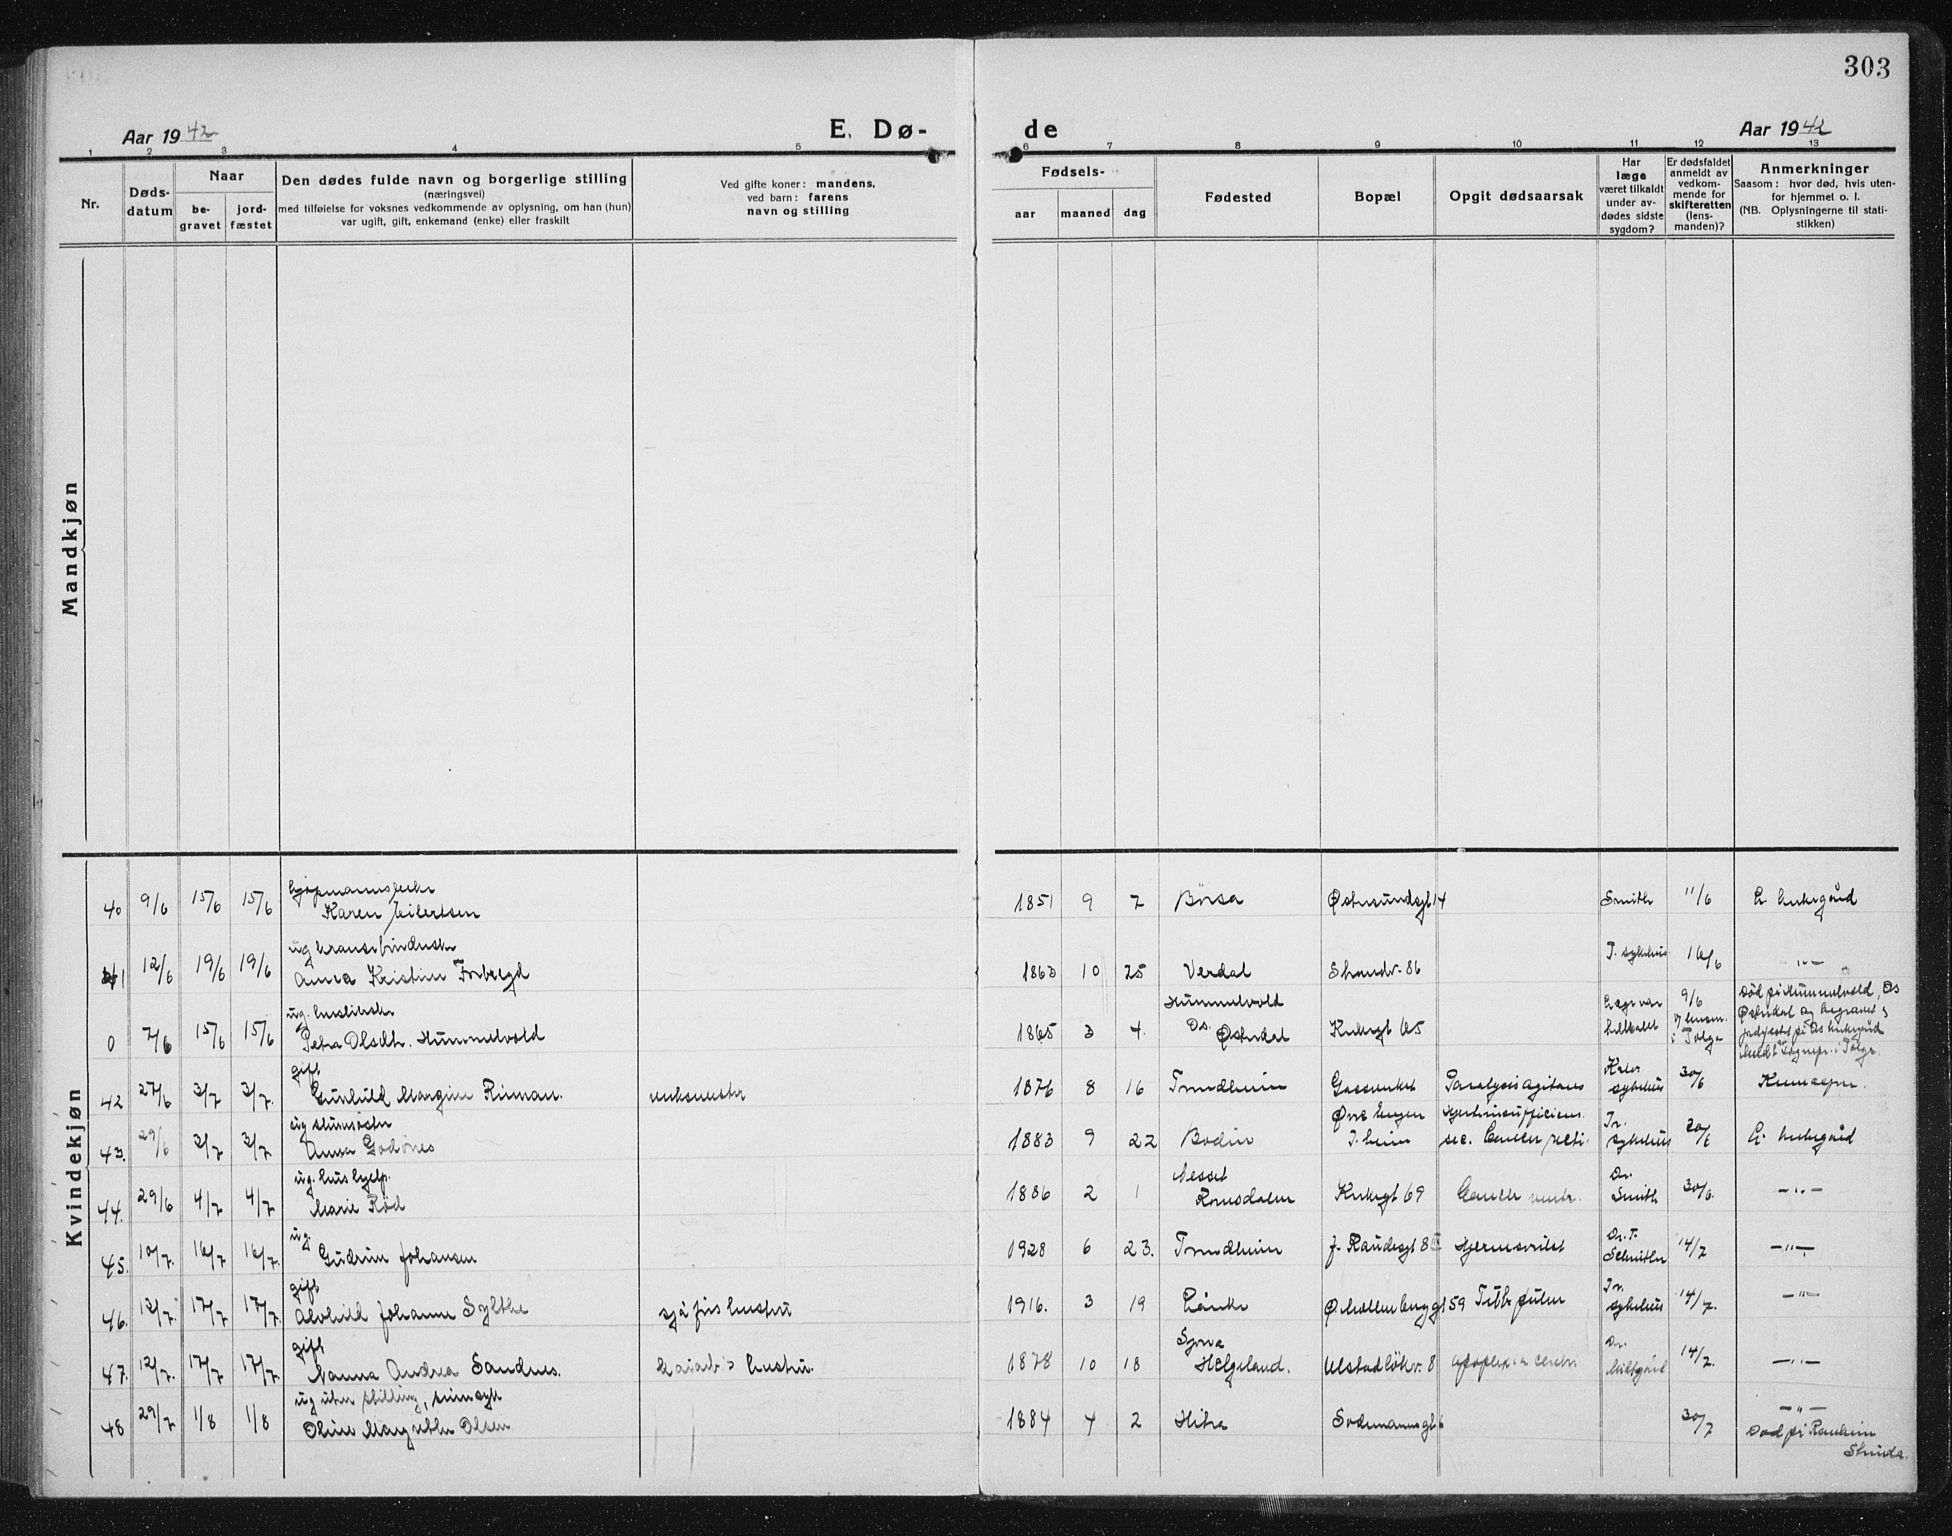 303
Aar 1942
E. Dø-
de
Aar 1942
1 2 3 4 5 6 7 8 9 10 11 12 13
Nr.
Døds-
datum
Naar
be-
gravet
jord-
fæstet
Den dødes fulde navn og borgerlige stilling
(næringsvei)
med tilføielse for voksnes vedkommende av oplysning, om han (hun)
var ugift, gift, enkemand (enke) eller fraskilt
Ved gifte koner: mandens,
ved barn: farens
navn og stilling
Fødsels-
aar maaned dag
Fødested
Bopæl
Opgit dødsaarsak
Har
læge
været tilkaldt
under av-
dødes sidste
sygdom?
Er dødsfaldet
anmeldt av
vedkom-
mende for
skifteretten
(lens-
manden)?
Anmerkninger
Saasom: hvor død, hvis uten-
for hjemmet o. l.
(NB. Oplysningerne til stati-
stikken)
Mandkjøn
Kvindekjøn
40 9/6 15/6 15/6
Karen Eilertsen
1851 9 7 Børsa Østersundsgt 14 Smith 11/6
41 12/6 19/6 19/6
Anna Kristine Forbregd
1863 10 25 Verdal Strandv. 86 T. sykehus 16/6 -"-
0 7/6 15/6 15/6
Petra Olsdtr. Hummelvold
1865 3 4. Hummelvold
Os. Østerdal Kirkegt 65 9/6
i Tolga
42 27/6 3/7 3/7.
gift
Gunhild Margine Rinnan.
1876 8 16 Trondheim Gassverket Paralysis agitans
sykehus 30/6
43. 29/6 3/7 3/7
Anna Godønes
1883 9 22 Bodin Øvre Bergen
T.heim sec. Cancer recti. Tr.
sykehus
44. 29/6 4/7 4/7
ug. hushjelp.
Marie Rød
1886 2 1 Nesset
Romsdalen Kirkegt 69 Cancer ventr. Dr.
Smith 30/6. -"-
45. 10/7. 16/7 16/7.
ug.
Gudrun Johansen
1928 6 23. Trondheim Hjernesvulst Dr. F.
14/7 -"-
46. 13/7. 17/7 17/7.
gift
Alvhild Johanne Sylthe
1916. 3 19 Lånke Ø. Møllenberggt 59 Tr.
sykehus 14/7. -"-
47. 12/7. 17/7 17/7.
gift
Nanna Andrea Sandnes.
hustru.
1878 10 18
Helgeland. Ulstadløkv. 8 apoplexia cerebri Dr.
14/7. -"-
48 29/7 1/8 1/8
ug uten stilling, sinnsyk
Oline Margrethe Olsen
1884 4 2 Hitra Sodemannsgt 6 30/7 -"-
Død på Ranheim
Strinda.